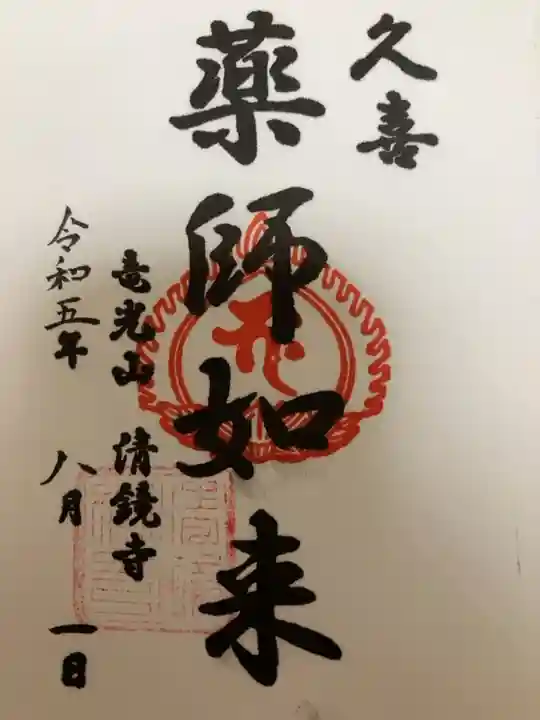 久喜
薬師如来
竜光山 清鏡寺
令和五年 八月 一日